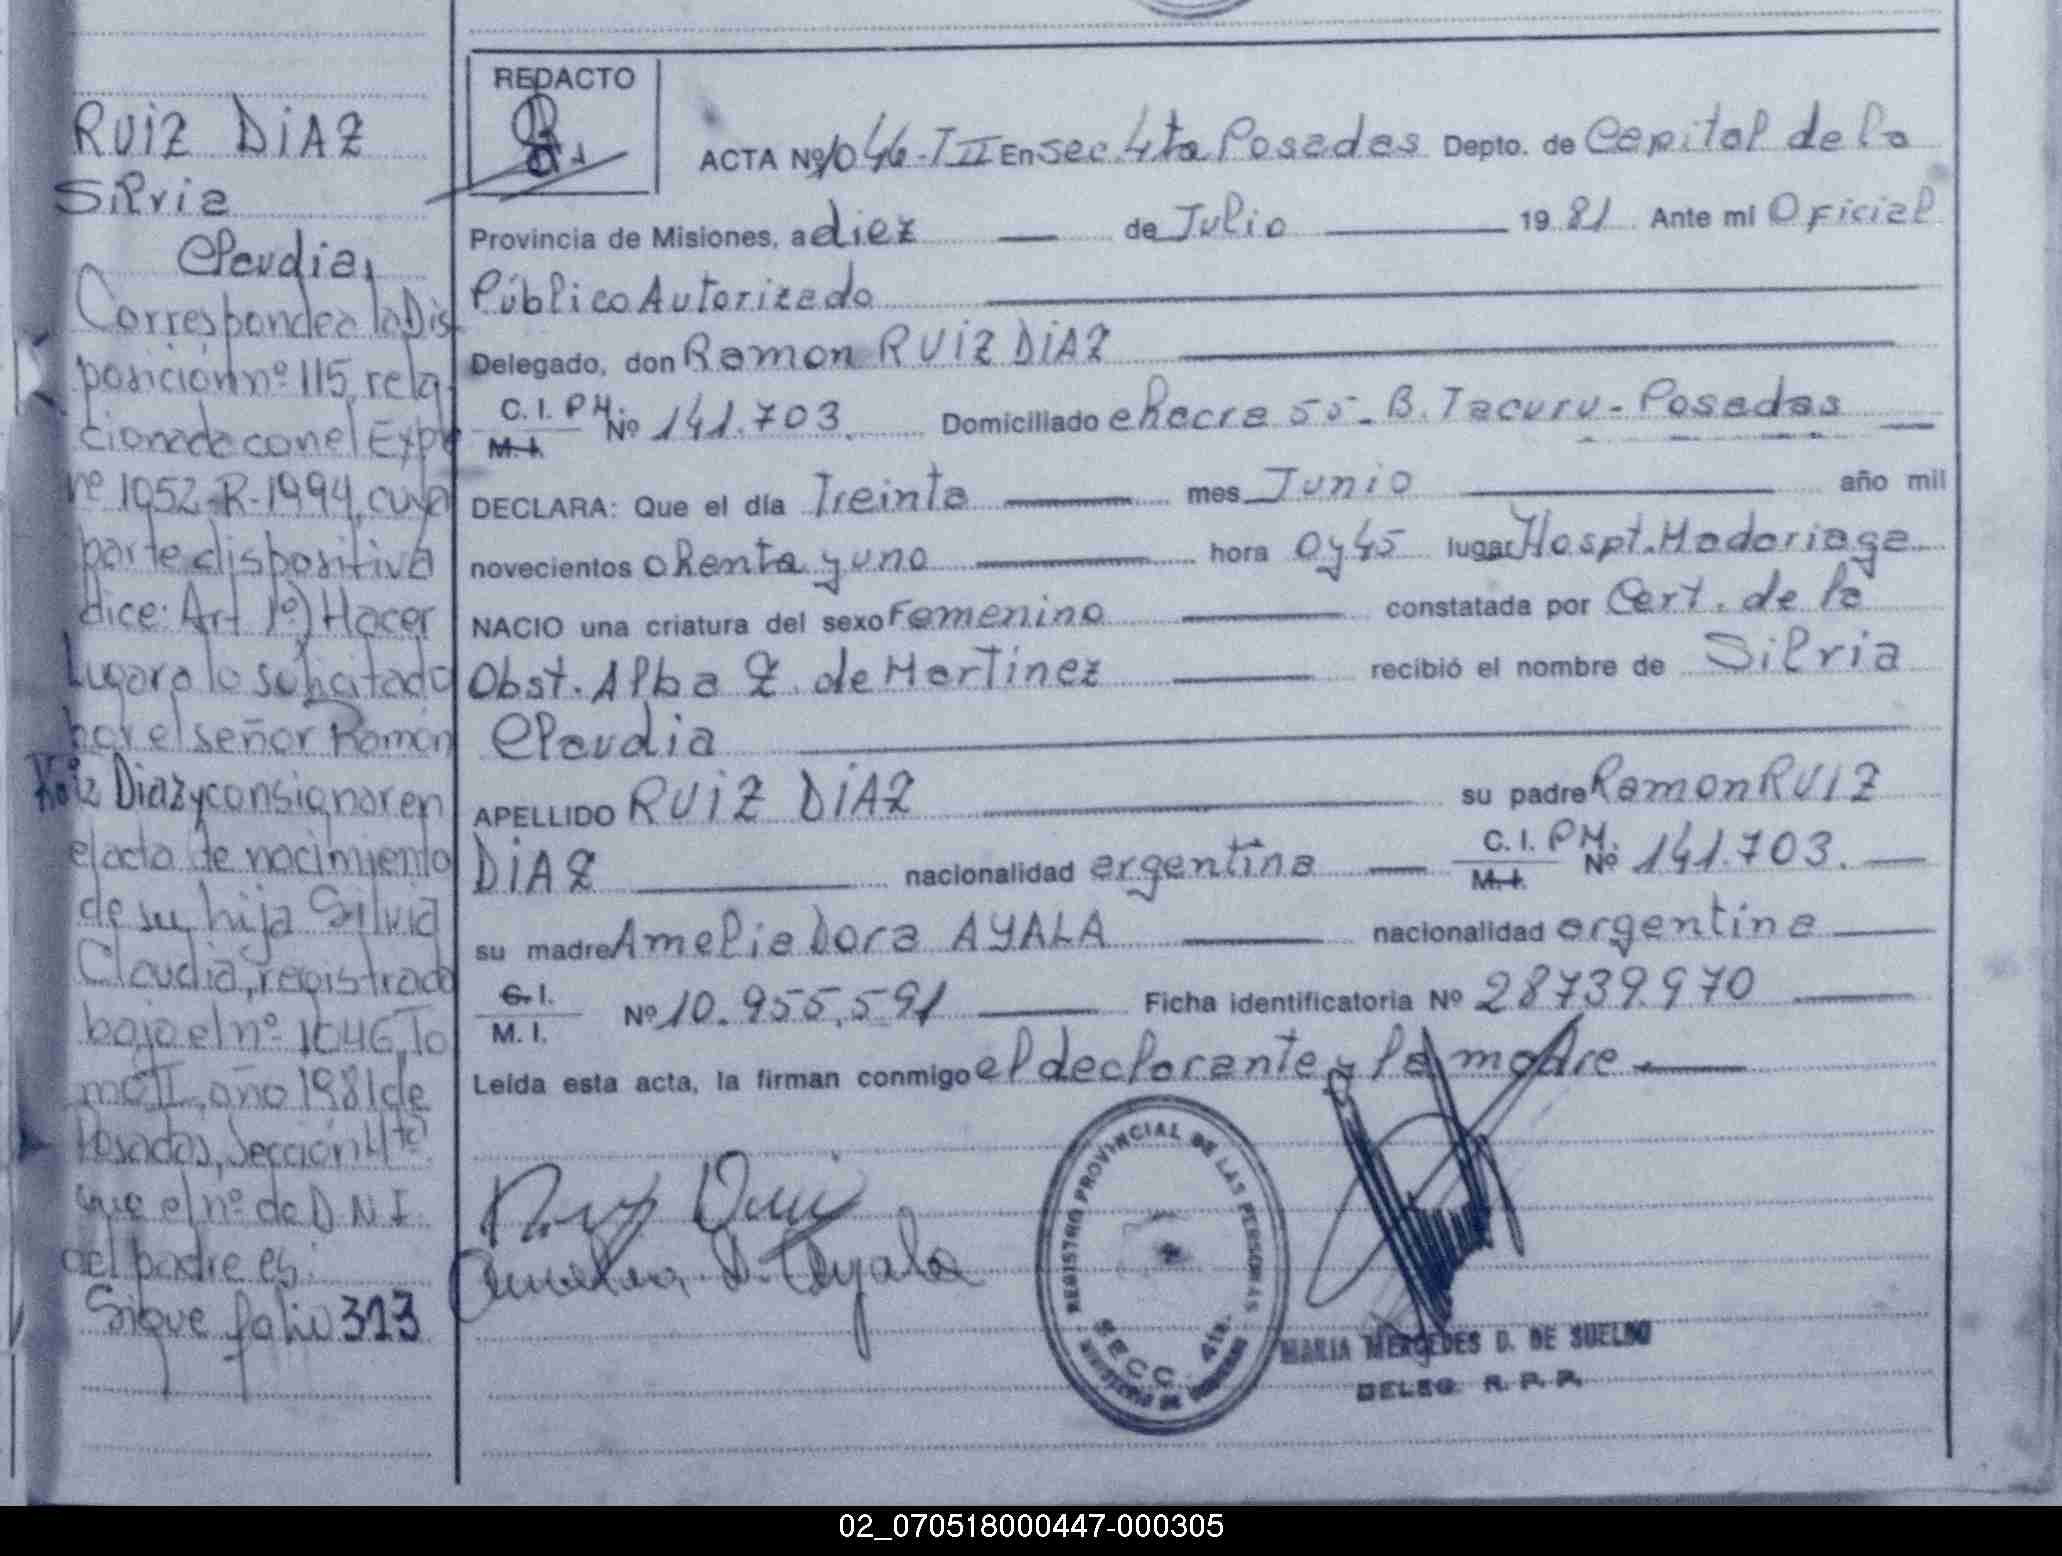 RUIZ DIAZ
Silvia
Claudia,
Corresponde a la Dis
posición nº 115, rela
cionada con el Expte
nº 1952-R-1994, cuya
parte dispositiva
dice: Art 1º) Hacer
Lugar a lo solicitado
por el señor Ramón
Ruiz Diaz y consignar en
el acta de nacimiento
de su hija Silvia
Claudia, registrada
bajo el nº 1046, To
mo II, año 1981 de
Posadas, Sección 4ta
que el nº de D.N.I.
del padre es:
Sigue folio 313
REDACTO
ACTA Nº 1046-T II En sec. 4ta Posadas Depto. de Capital de la
Provincia de Misiones, a diez de Julio 19 81 Ante mi Oficial
Público Autorizado
Delegado, don Ramon RUIZ DIAZ
C. I. P M. M. I. Nº 141.703. Domiciliado chacra 55 - B. Tacuru - Posadas
DECLARA: Que el día Treinta mes Junio año mil
novecientos ochenta y uno hora 0 y 45 lugar Hospt. Madariaga
NACIO una criatura del sexo Femenino constatada por Cert. de la
Obst. Alba Z. de Martinez recibió el nombre de Silvia
Claudia
APELLIDO RUIZ DIAZ su padre Ramon RUIZ
DIAZ nacionalidad argentina C. I. P M. M. I. Nº 141.703.
su madre Amelia Dora AYALA nacionalidad argentina
C. I. M. I. Nº 10.955.591 Ficha identificatoria Nº 28739.970
Leída esta acta, la firman conmigo el declarante y la madre
Ruiz Diaz
Amelia D. Ayala
REGISTRO PROVINCIAL DE LAS PERSONAS
SECC. 4ta.
MARIA MERCEDES D. DE SUELDO
DELEG. R. P. P.
02_070518000447-000305